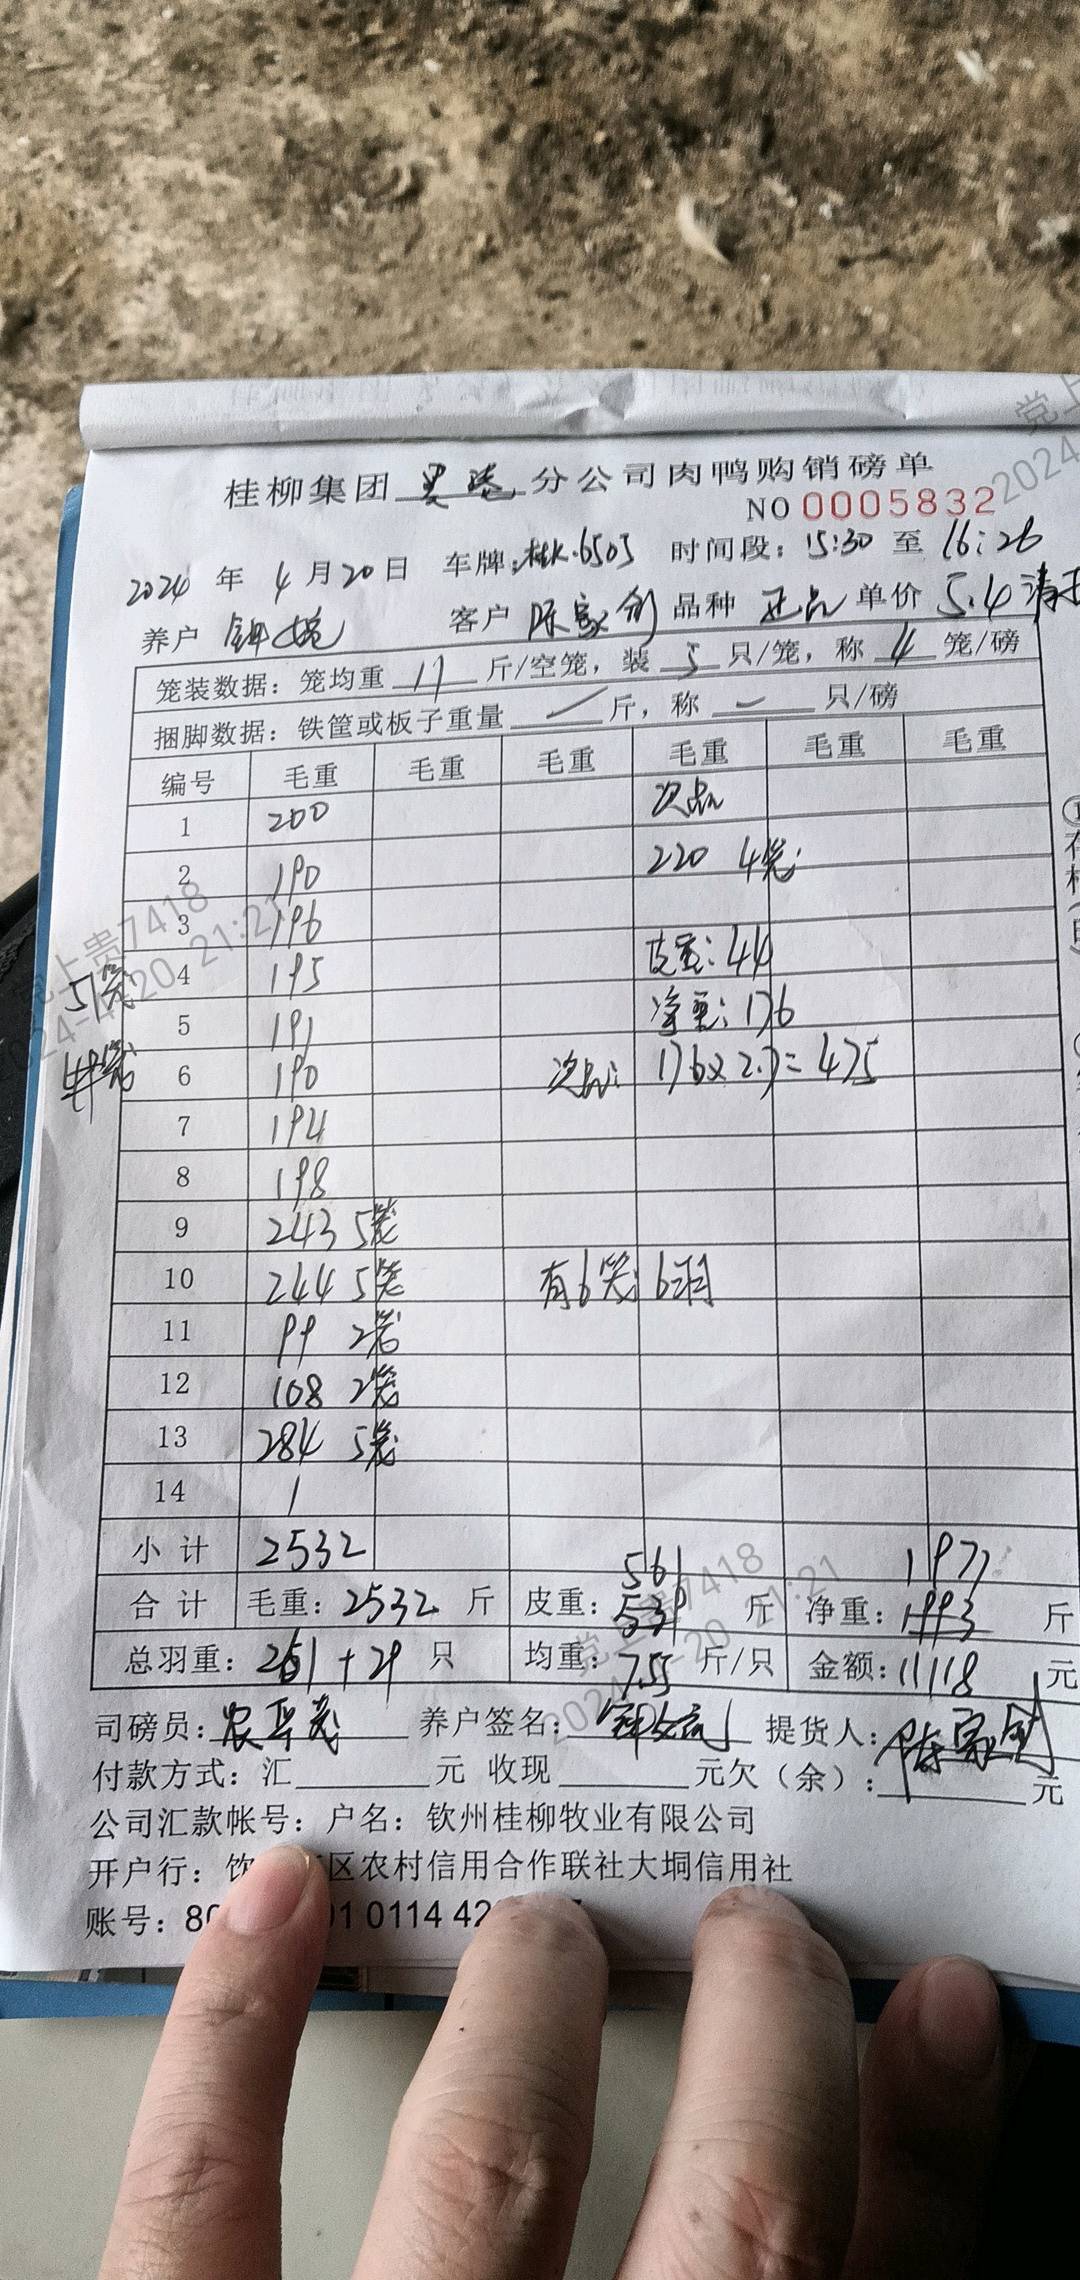 桂柳集团 灵 分公司肉鸭购销磅单
NO 0005832
2024 年 4 月 20 日 车牌: 6505 时间段: 15:30 至 16:26
养户 钟 客户 陈家剑 品种 正品 单价 5.4
笼装数据: 笼均重 11 斤/空笼, 装 5 只/笼, 称 4 笼/磅
捆脚数据: 铁筐或板子重量 斤, 称 只/磅
编号 毛重 毛重 毛重 毛重 毛重 毛重
1 200 次品
2 190 220 4笼
3 196
4 195 皮重: 44
5 191 净重: 176
6 190 次品: 176x2.7=475
7 194
8 198
9 243 5笼
10 244 5笼 有6笼 6羽
11 99 2笼
12 108 2笼
13 284 5笼
14 1
小计 2532
合计 毛重: 2532 斤 皮重: 561 539 斤 净重: 1977 1993 斤
总羽重: 261+29 只 均重: 7.55 斤/只 金额: 11118 元
51笼
司磅员: 农 养户签名: 钟 提货人: 陈家剑
付款方式: 汇 元 收现 元欠(余): 元
公司汇款帐号: 户名: 钦州桂柳牧业有限公司
开户行: 区农村信用合作联社大垌信用社
账号: 80 01 0114 42
党上贵7418
2024-4-20 21:21
党上贵7418
2024-4-20 21:21
党上
2024